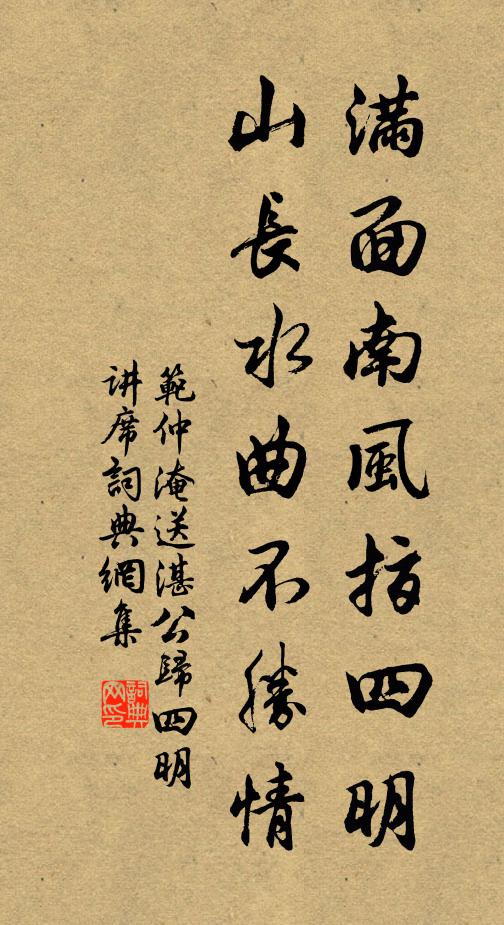 滿面南風指四明
山長水曲不勝情
範仲淹送湛公歸四明
讲席詞典網集
詞典
网印